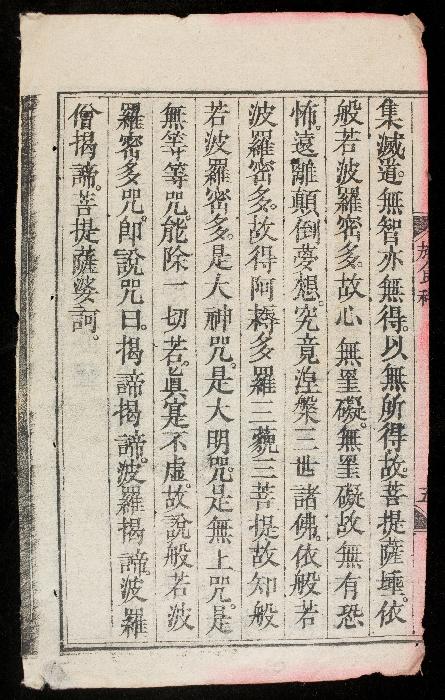 集滅道。無智亦無得。以無所得故。菩提薩埵。依
般若波羅密多。故心無罣礙。無罣礙故。無有恐
怖。遠離顛倒夢想。究竟涅槃。三世諸佛。依般若
波羅密多。故得阿耨多羅三藐三菩提。故知般
若波羅密多。是大神咒。是大明咒。是無上咒。是
無等等咒。能除一切苦。眞實不虛。故說般若波
羅密多咒。即說咒曰。揭諦揭諦。波羅揭諦。波羅
僧揭諦。菩提薩婆訶。